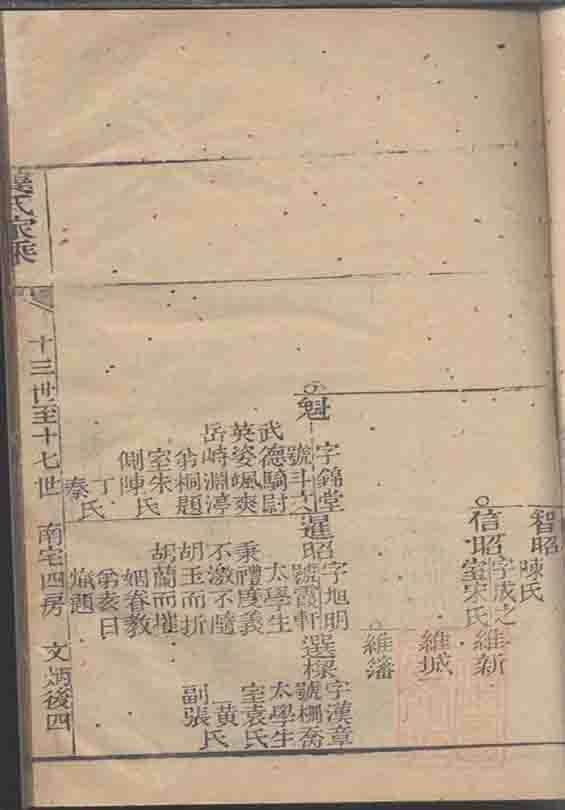 智昭
陳氏
信昭
字成之
室宋氏
維新
維城
維藩
魁
字錦堂
號斗
武德騎尉
英姿颯爽
岳峙淵渟
弟桐題
室朱
側陳氏
丁
秦氏
暹昭
字旭明
號霞軒
太學生
秉禮度義
不激不隨
胡玉而折
胡蘭而摧
姻眷教
弟 日
題
選樑
字漢章
號柵喬
太學生
室袁氏
黃氏
副張
氏家乘
十三世至十七世 南宅四房 文炳後四